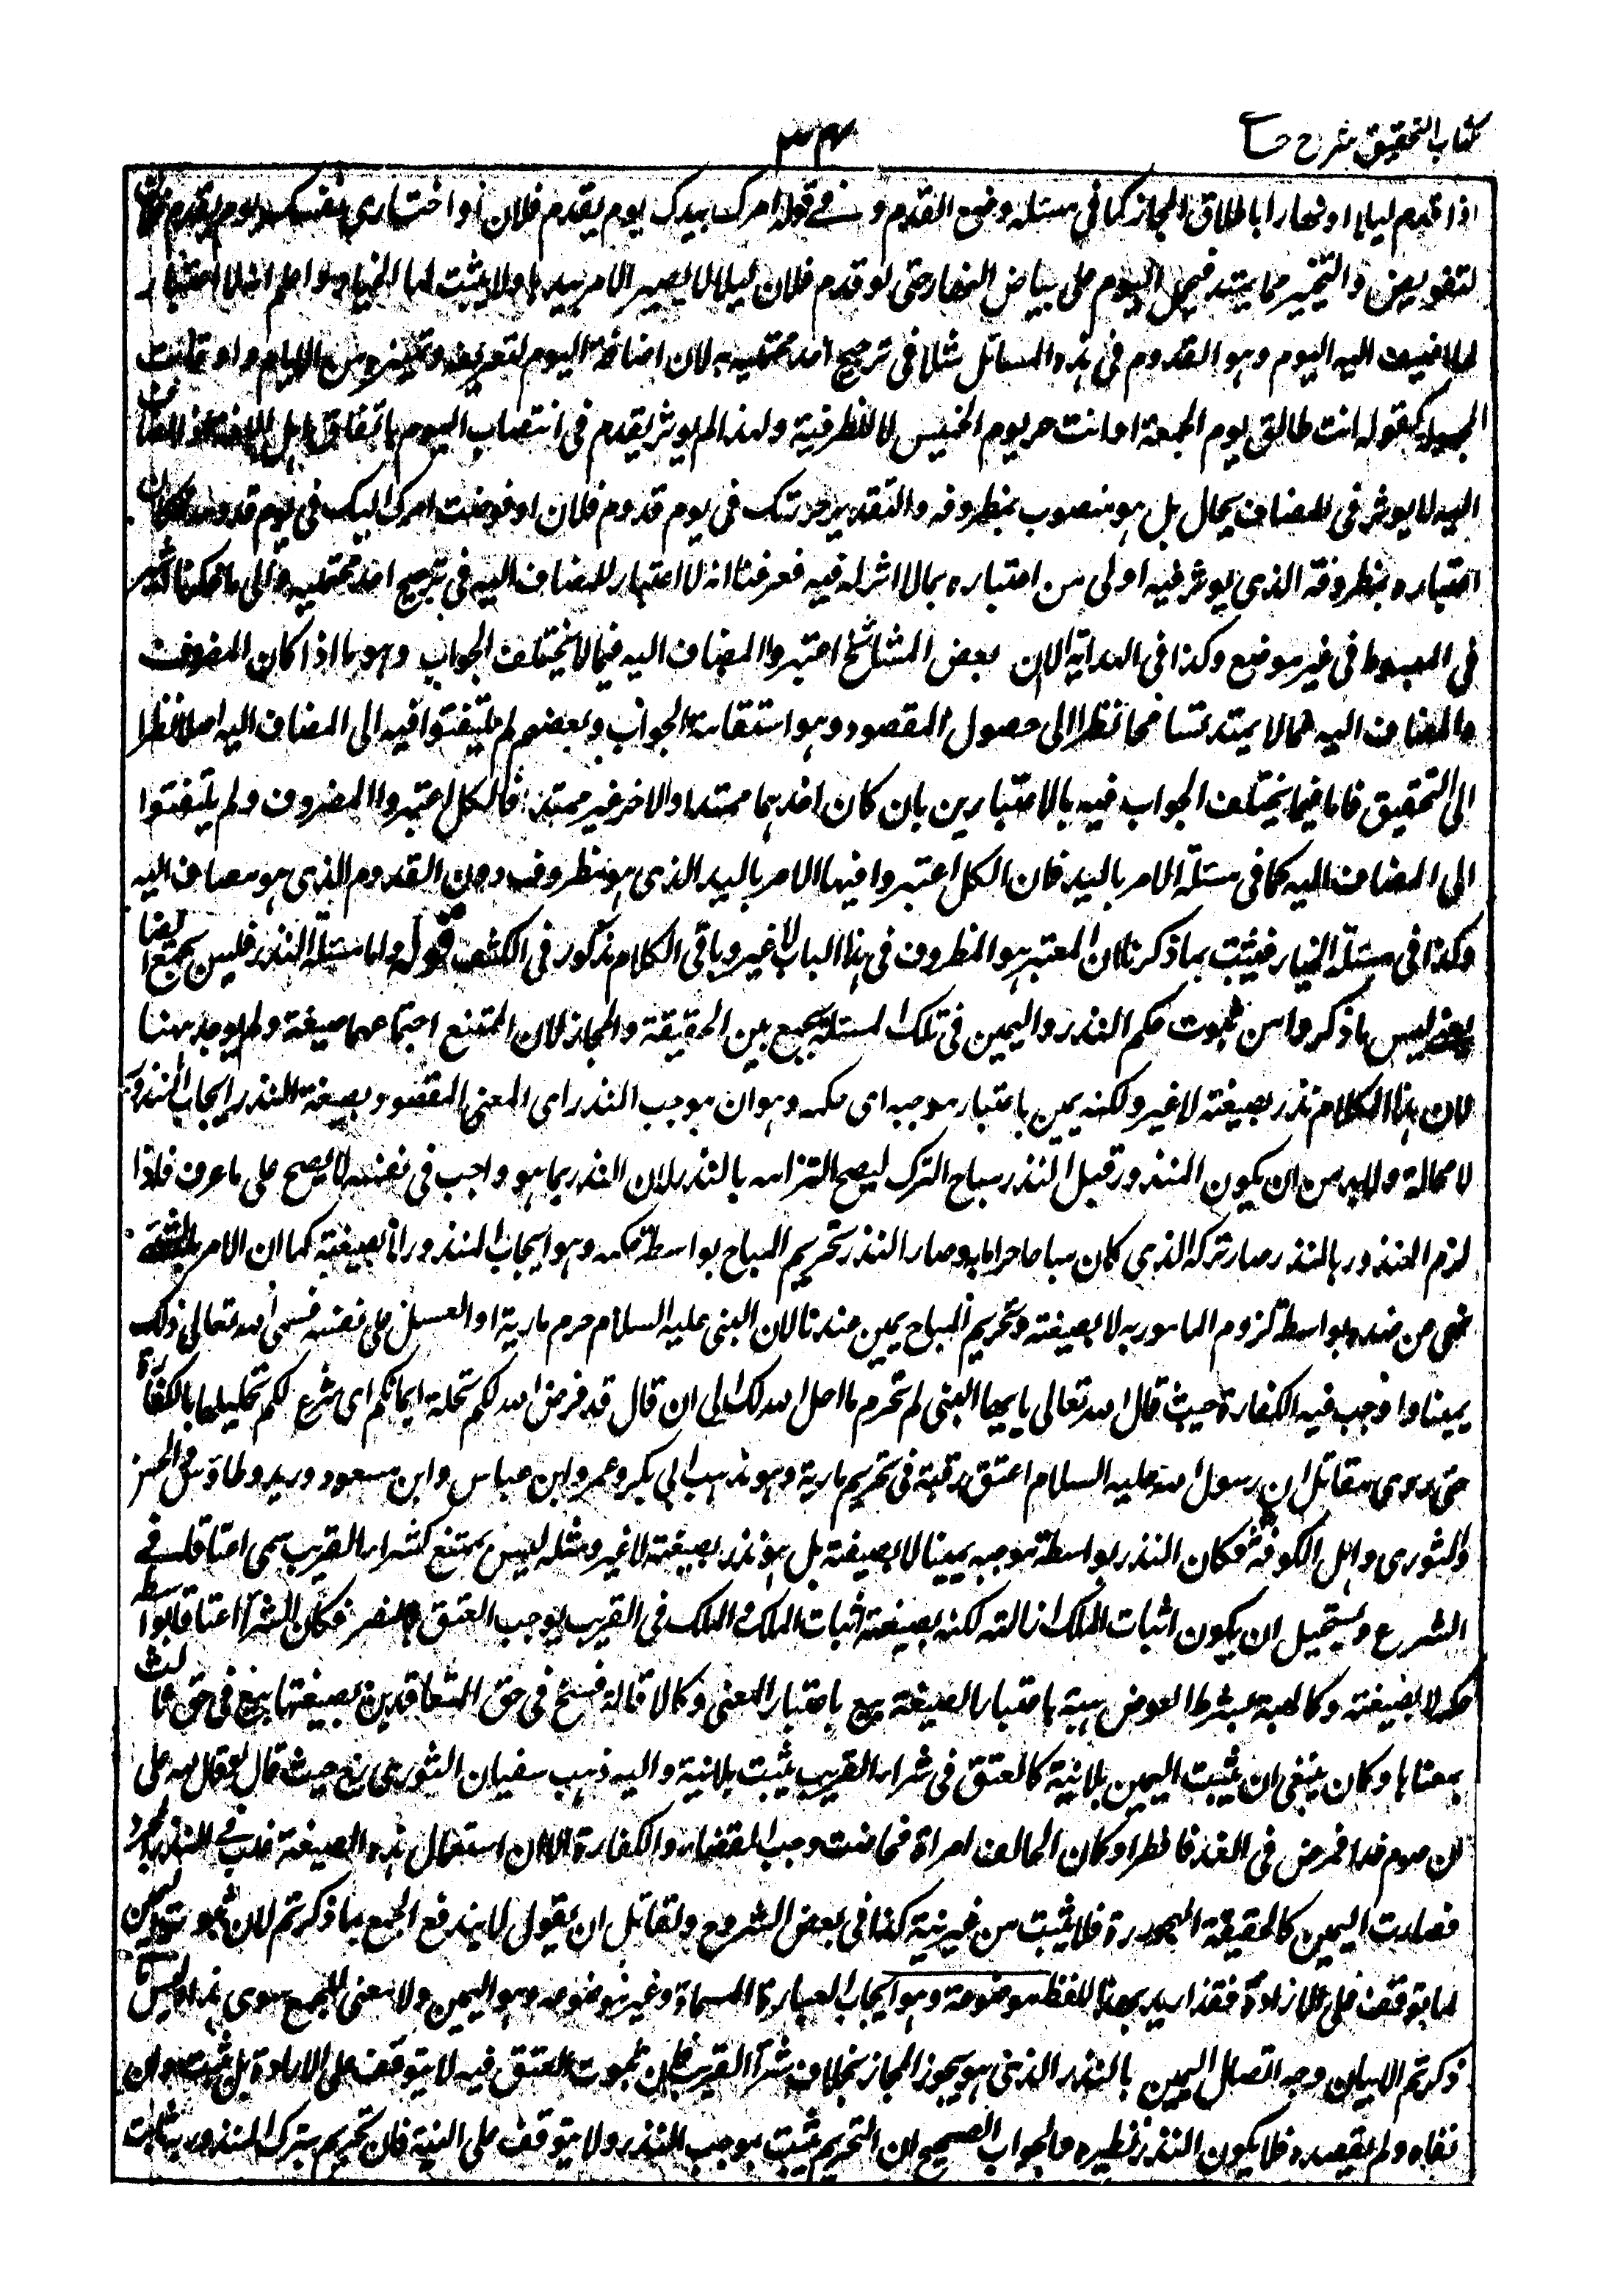 كتاب التحقيق شرح حسامى
٣٤
اذا قدم ليلا او نهارا باطلاق المجاز كما فى مسئلة وضع القدم و فى قوله امرك بيدك يوم يقدم فلان او اختارى نفسك يوم يقدم فلان
التفويض والتخيير مما يمتد فيحمل اليوم على بياض النهار حتى لو قدم فلان ليلا لا يصير الامر بيدها ولا يثبت لها الخيار واعلم انه لا اعتبار
لما اضيف اليه اليوم وهو القدوم فى هذه المسائل مثلا فى ترجيح احد محتمليه لان اضافة اليوم لتعريفه وتمييزه من الايام والاوقات
المجهولة كقوله انت طالق يوم الجمعة او انت حر يوم الخميس لا للظرفية ولهذا لم يوثر يقدم فى انتصاب اليوم باتفاق اهل اللغة اذ المضاف
اليه لا يوثر فى المضاف بحال بل هو منصوب بمظروفه والتقدير حررتك فى يوم قدوم فلان او فوضت امرك اليك فى يوم قدومه فكان
اعتباره بمظروفه الذى يوثر فيه اولى من اعتباره بما لا اثر له فيه فعرفنا انه لا اعتبار للمضاف اليه فى ترجيح احد محتمليه والى ما ذكرنا اشير
فى المبسوط فى غير موضع وكذا فى الهداية الا ان بعض المشائخ اعتبروا المضاف اليه فيما لا يختلف الجواب وهو ما اذا كان المظروف
والمضاف اليه مما لا يمتد تسامحا نظرا الى حصول المقصود وهو استقامة الجواب وبعضهم لم يلتفتوا فيه الى المضاف اليه اصلا نظرا
الى التحقيق فاما فيما يختلف الجواب فيه بالاعتبارين بان كان احدهما ممتدا والاخر غير ممتد فالكل اعتبروا المظروف ولم يلتفتوا
الى المضاف اليه كما فى مسئلة الامر باليد فان الكل اعتبروا فيها الامر باليد الذى هو مظروف دون القدوم الذى هو مضاف اليه
وكذا فى مسئلة الخيار فيثبت بما ذكرنا ان المعتبر هو المظروف فى هذا الباب لا غير وباقى الكلام مذكور فى الكشف قوله واما مسئلة النذر فليس بجمع ايضا
يعنى ليس ما ذكروا من ثبوت حكم النذر واليمين فى تلك المسئلة بجمع بين الحقيقة والمجاز لان الممتنع اجتماعهما صيغة ولم يوجد ههنا
لان هذا الكلام نذر بصيغته لا غير ولكنه يمين باعتبار موجبه اى حكمه وهو ان موجب النذر اى المعنى المقصود بصيغة النذر ايجاب المنذور
لا محالة ولا بد من ان يكون المنذور قبل النذر مباح الترك ليصح التزامه بالنذر لان النذر بما هو واجب فى نفسه لا يصح على ما عرف فاذا
لزم المنذور بالنذر صار تركه الذى كان مباحا حراما به وصار النذر تحريم المباح بواسطة حكمه وهو ايجاب المنذور لا بصيغته كما ان الامر بالشئ
نهى عن ضده بواسطة لزوم المامور به لا بصيغته وتحريم المباح يمين عندنا لان النبى عليه السلام حرم مارية او العسل على نفسه فسمى الله تعالى ذلك
يمينا واوجب فيه الكفارة حيث قال الله تعالى يا ايها النبى لم تحرم ما احل الله لك الى ان قال قد فرض الله لكم تحلة ايمانكم اى شرع لكم تحليلها بالكفارة
حتى روى مقاتل ان رسول الله عليه السلام اعتق رقبة فى تحريم مارية وهو مذهب ابى بكر وعمر وابن عباس وابن مسعود وزيد وطاؤس والحسن
والثورى واهل الكوفة فكان النذر بواسطة موجبه يمينا لا بصيغته بل هو نذر بصيغته لا غير ومثله ليس بممتنع كشراء القريب سمى اعتاقا فى
الشرع ويستحيل ان يكون اثبات الملك ازالته لكنه بصيغته اثبات الملك والملك فى القريب يوجب العتق بالنص فكان الشراء اعتاقا بواسطة
حكمه لا بصيغته وكالهبة بشرط العوض هبة باعتبار الصيغة بيع باعتبار المعنى وكالاقالة فسخ فى حق المتعاقدين بصيغتها بيع فى حق ثالث
بمعناها وكان ينبغى ان يثبت اليمين بلا نية كالعتق فى شراء القريب يثبت بلا نية واليه ذهب سفيان الثورى رح حيث قال لو قال لله على
ان صوم غدا فمرض فى الغد فافطر او كان الحالف امراة فحاضت وجب القضاء والكفارة الا ان استعمال هذه الصيغة غلب فى النذر
فصارت اليمين كالحقيقة المهجورة فلا يثبت من غير نية كذا فى بعض الشروح ولقائل ان يقول لا يندفع الجمع بما ذكرتم لان ثبوت اليمين
لما توقف على الارادة فقد اريد بهذا اللفظ موضوعه وهو ايجاب العبادة المسماة وغير موضوعه وهو اليمين ولا معنى للجمع سوى هذا وليس
ذكرتم الا بيان وجه اتصال اليمين بالنذر الذى هو يجوز المجاز بخلاف شراء القريب فان ثبوت العتق فيه لا يتوقف على الارادة بل يثبت وان
نفاه ولم يقصده فلا يكون النذر نظيره والجواب الصحيح ان التحريم يثبت بموجب النذر ولا يتوقف على النية فان تحريم ترك المنذور يثابت